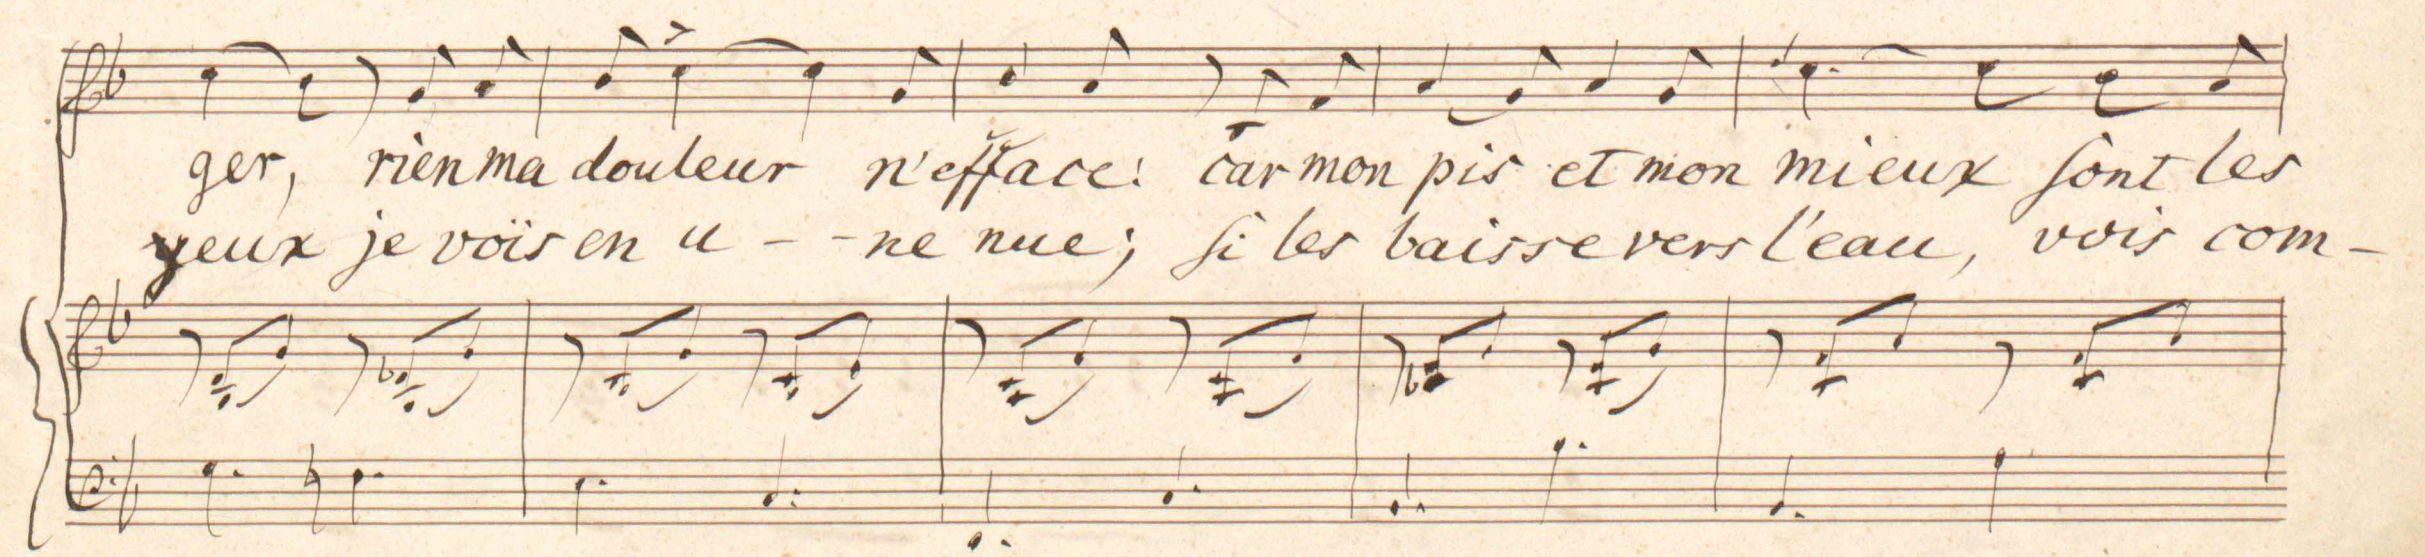 ger, rien ma douleur n'efface: car mon pis et mon mieux sont les
yeux je vois en u--ne nue; si les baisse vers l'eau, vois com-